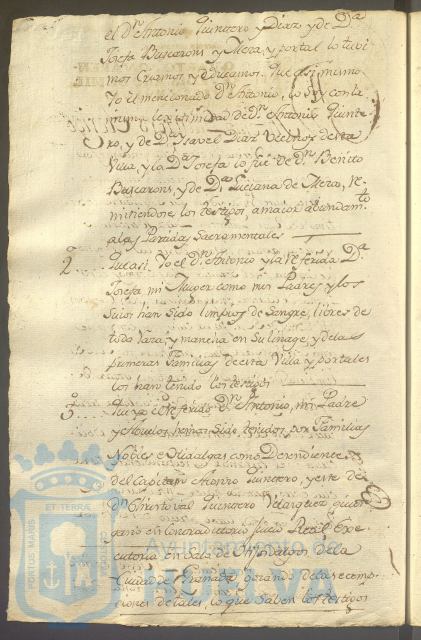 el Dn. Antonio Quintero y Diaz y de Da.
Josefa Buscarons y Mera y por tal lo tuvi-
mos Criamos y educamos. Que asi mismo
Yo el mencionado Dn. Antonio, lo soy con la
misma lexitimidad de Dn. Antonio Quinte-
ro, y de Da. Ysavel Diaz Vecinos de esta
Villa, y la Da. Josefa lo fue de Dn. Benito
Buscarons, y de Da. Luciana de Mera, re-
mitiendose los testigos, a maior abundamto.
a las Partidas Sacramentales
2a. Que asi Yo el Dn. Antonio y la referida Da.
Josefa mi Muger como mis Padres y los
suios han sido limpios de Sangre, libres de
toda raza y mancha en su linage, y de las
primeras Familias de esta Villa y por tales
los han tenido los testigos
3a. Que yo el referido Dn. Antonio, mi Padre
y Abuelos, hemos sido tenidos, por Familias
Nobles e Hidalgas como Decendientes
del Capitan Alonso Quintero, y este de
Dn. Christoval Quintero Velazquez quien
gano en Contradictorio juicio Real Exe-
cutoria en Sala de Hijosdalgos de la
Ciudad de Granada, gozando de las exemp-
ciones de tales, lo que saben los testigos
ET TERRAE
PORTUS MARIS
CUSTODIA
Ayuntamiento de
HUELVA